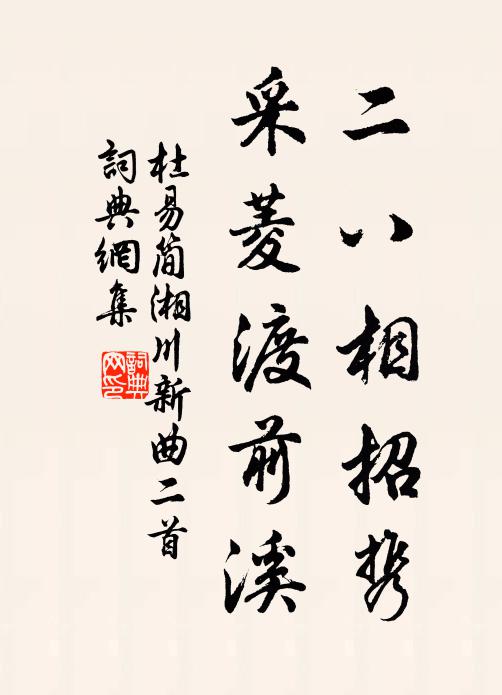 二八相招携
采菱渡前溪
杜易简湘川新曲二首
詞典網集
詞典网印